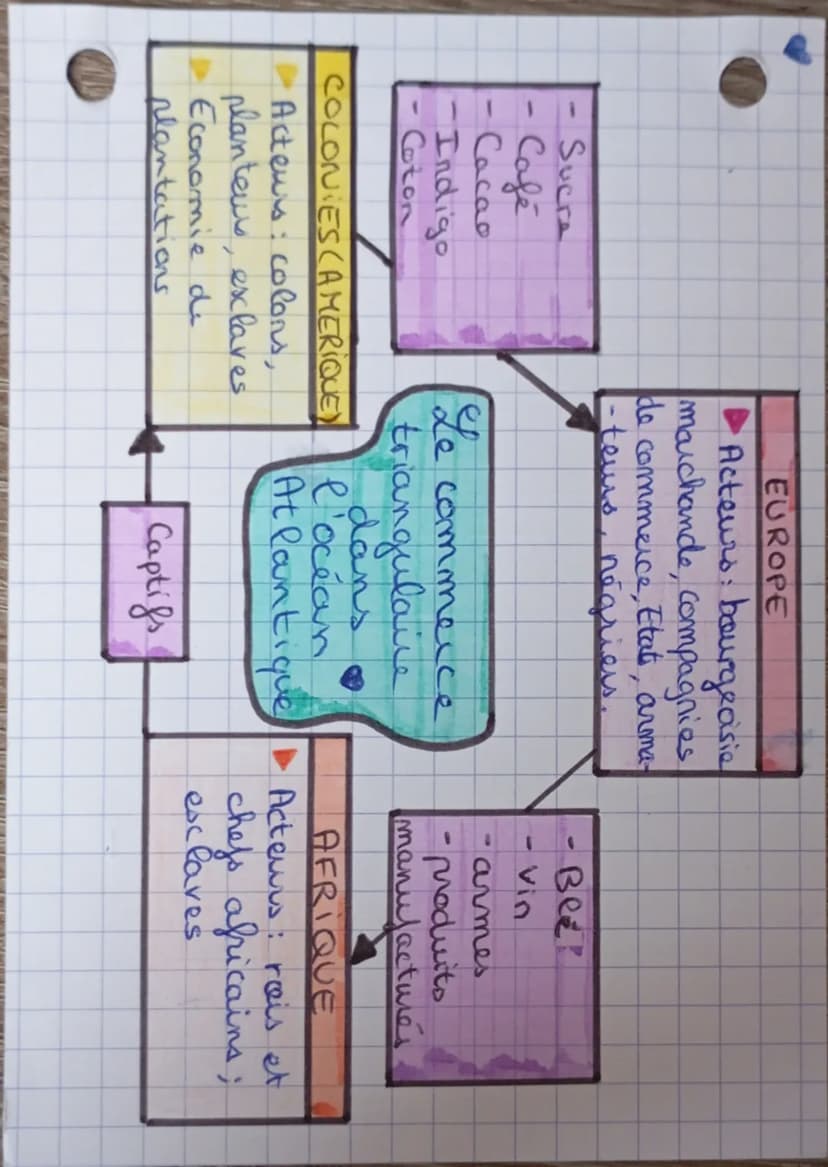 EUROPE
Acteurs : bourgeoisie
marchande, compagnies
de commerce, Etat, arma-
-teurs, négriers.
- Sucre
- Café
- Cacao
- Indigo
- Coton
Le commerce
triangulaire
dans
l'océan
Atlantique
- Blé
- vin
- armes
- produits
manufacturés
COLONIES (AMERIQUE)
Acteurs : colons,
planteurs, esclaves
Economie de
plantations
Captifs
AFRIQUE
Acteurs : rois et
chefs africains ;
esclaves